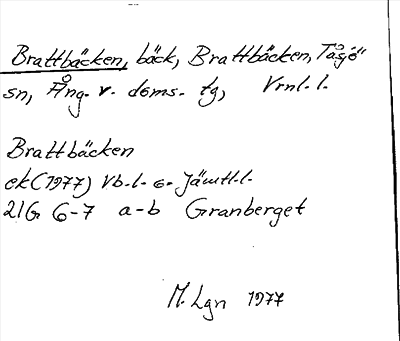 Brattbäcken, bäck, Brattbäcken, Tåsjö
sn, Ång. v. doms. tg, Vrnl. l.
Brattbäcken
ek (1977) Vb. l. o. Jämtl. l.
21G 6-7 a-b Granberget
M. Lgn 1977